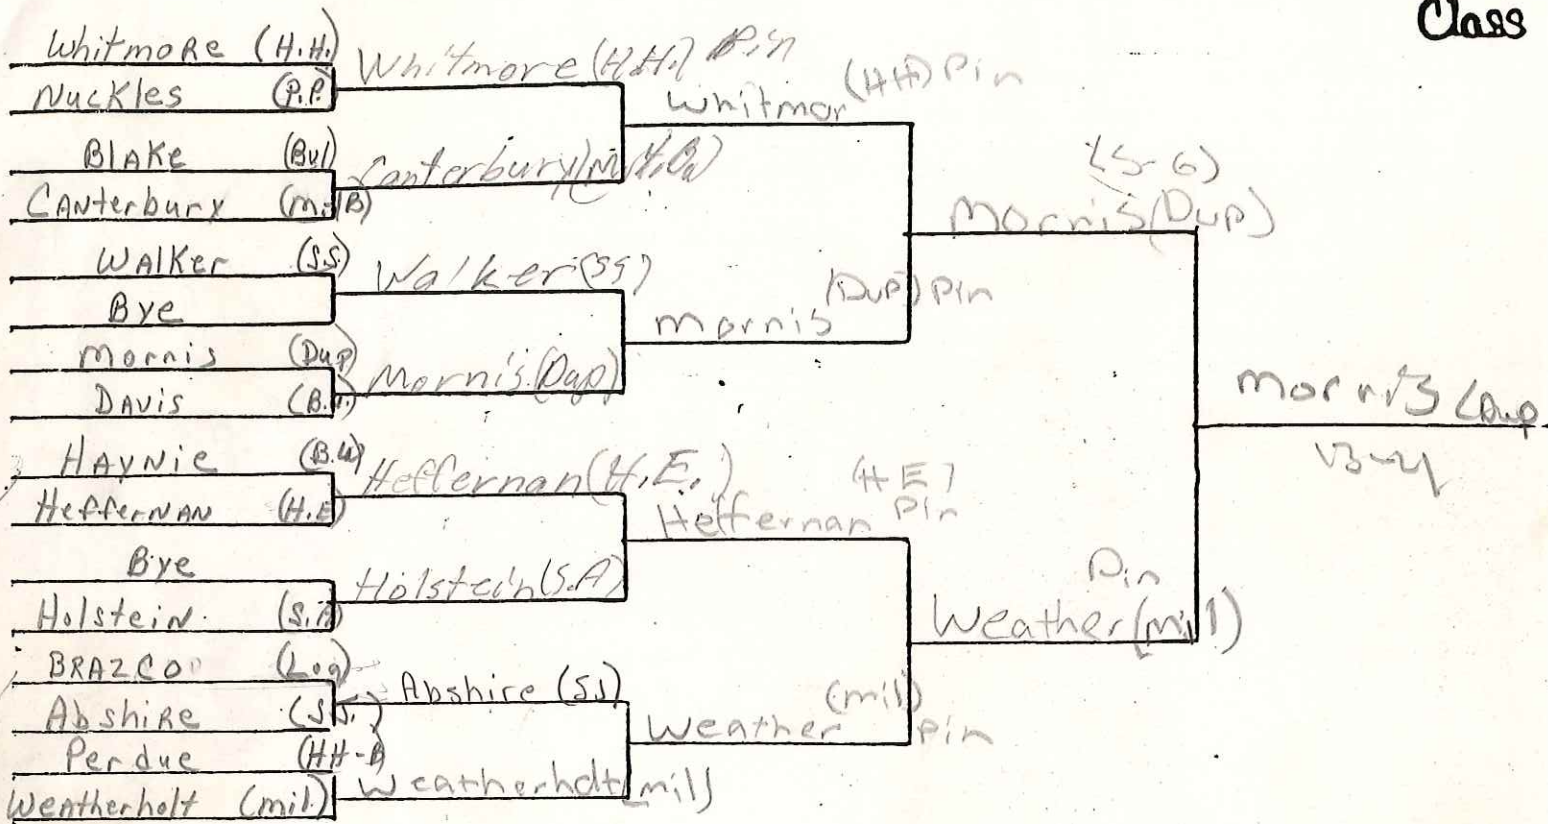 Class
Whitmore (H.H.)
Nuckles (P.P.)
Blake (Bul)
Canterbury (MilB)
Walker (S.S.)
Bye
Morris (Dup)
Davis
Haynie (B.W)
Heffernan (H.E)
Bye
Holstein (S.A)
Brazco (Log)
Abshire (S.S.)
Perdue (HH-B)
Weatherholt (mil.)
Whitmore (H.H.) Pin
Canterbury
Walker (SS)
Morris (Dup)
Heffernan (H.E.)
Holstein (S.A)
Abshire (SS)
Weatherholt (mil)
Whitmor (HH) Pin
Morris (Dup) Pin
Heffernan (HE) Pin
Weather (mil) Pin
(5-6)
Morris (Dup)
Pin
Weather (mil)
Morris (Dup